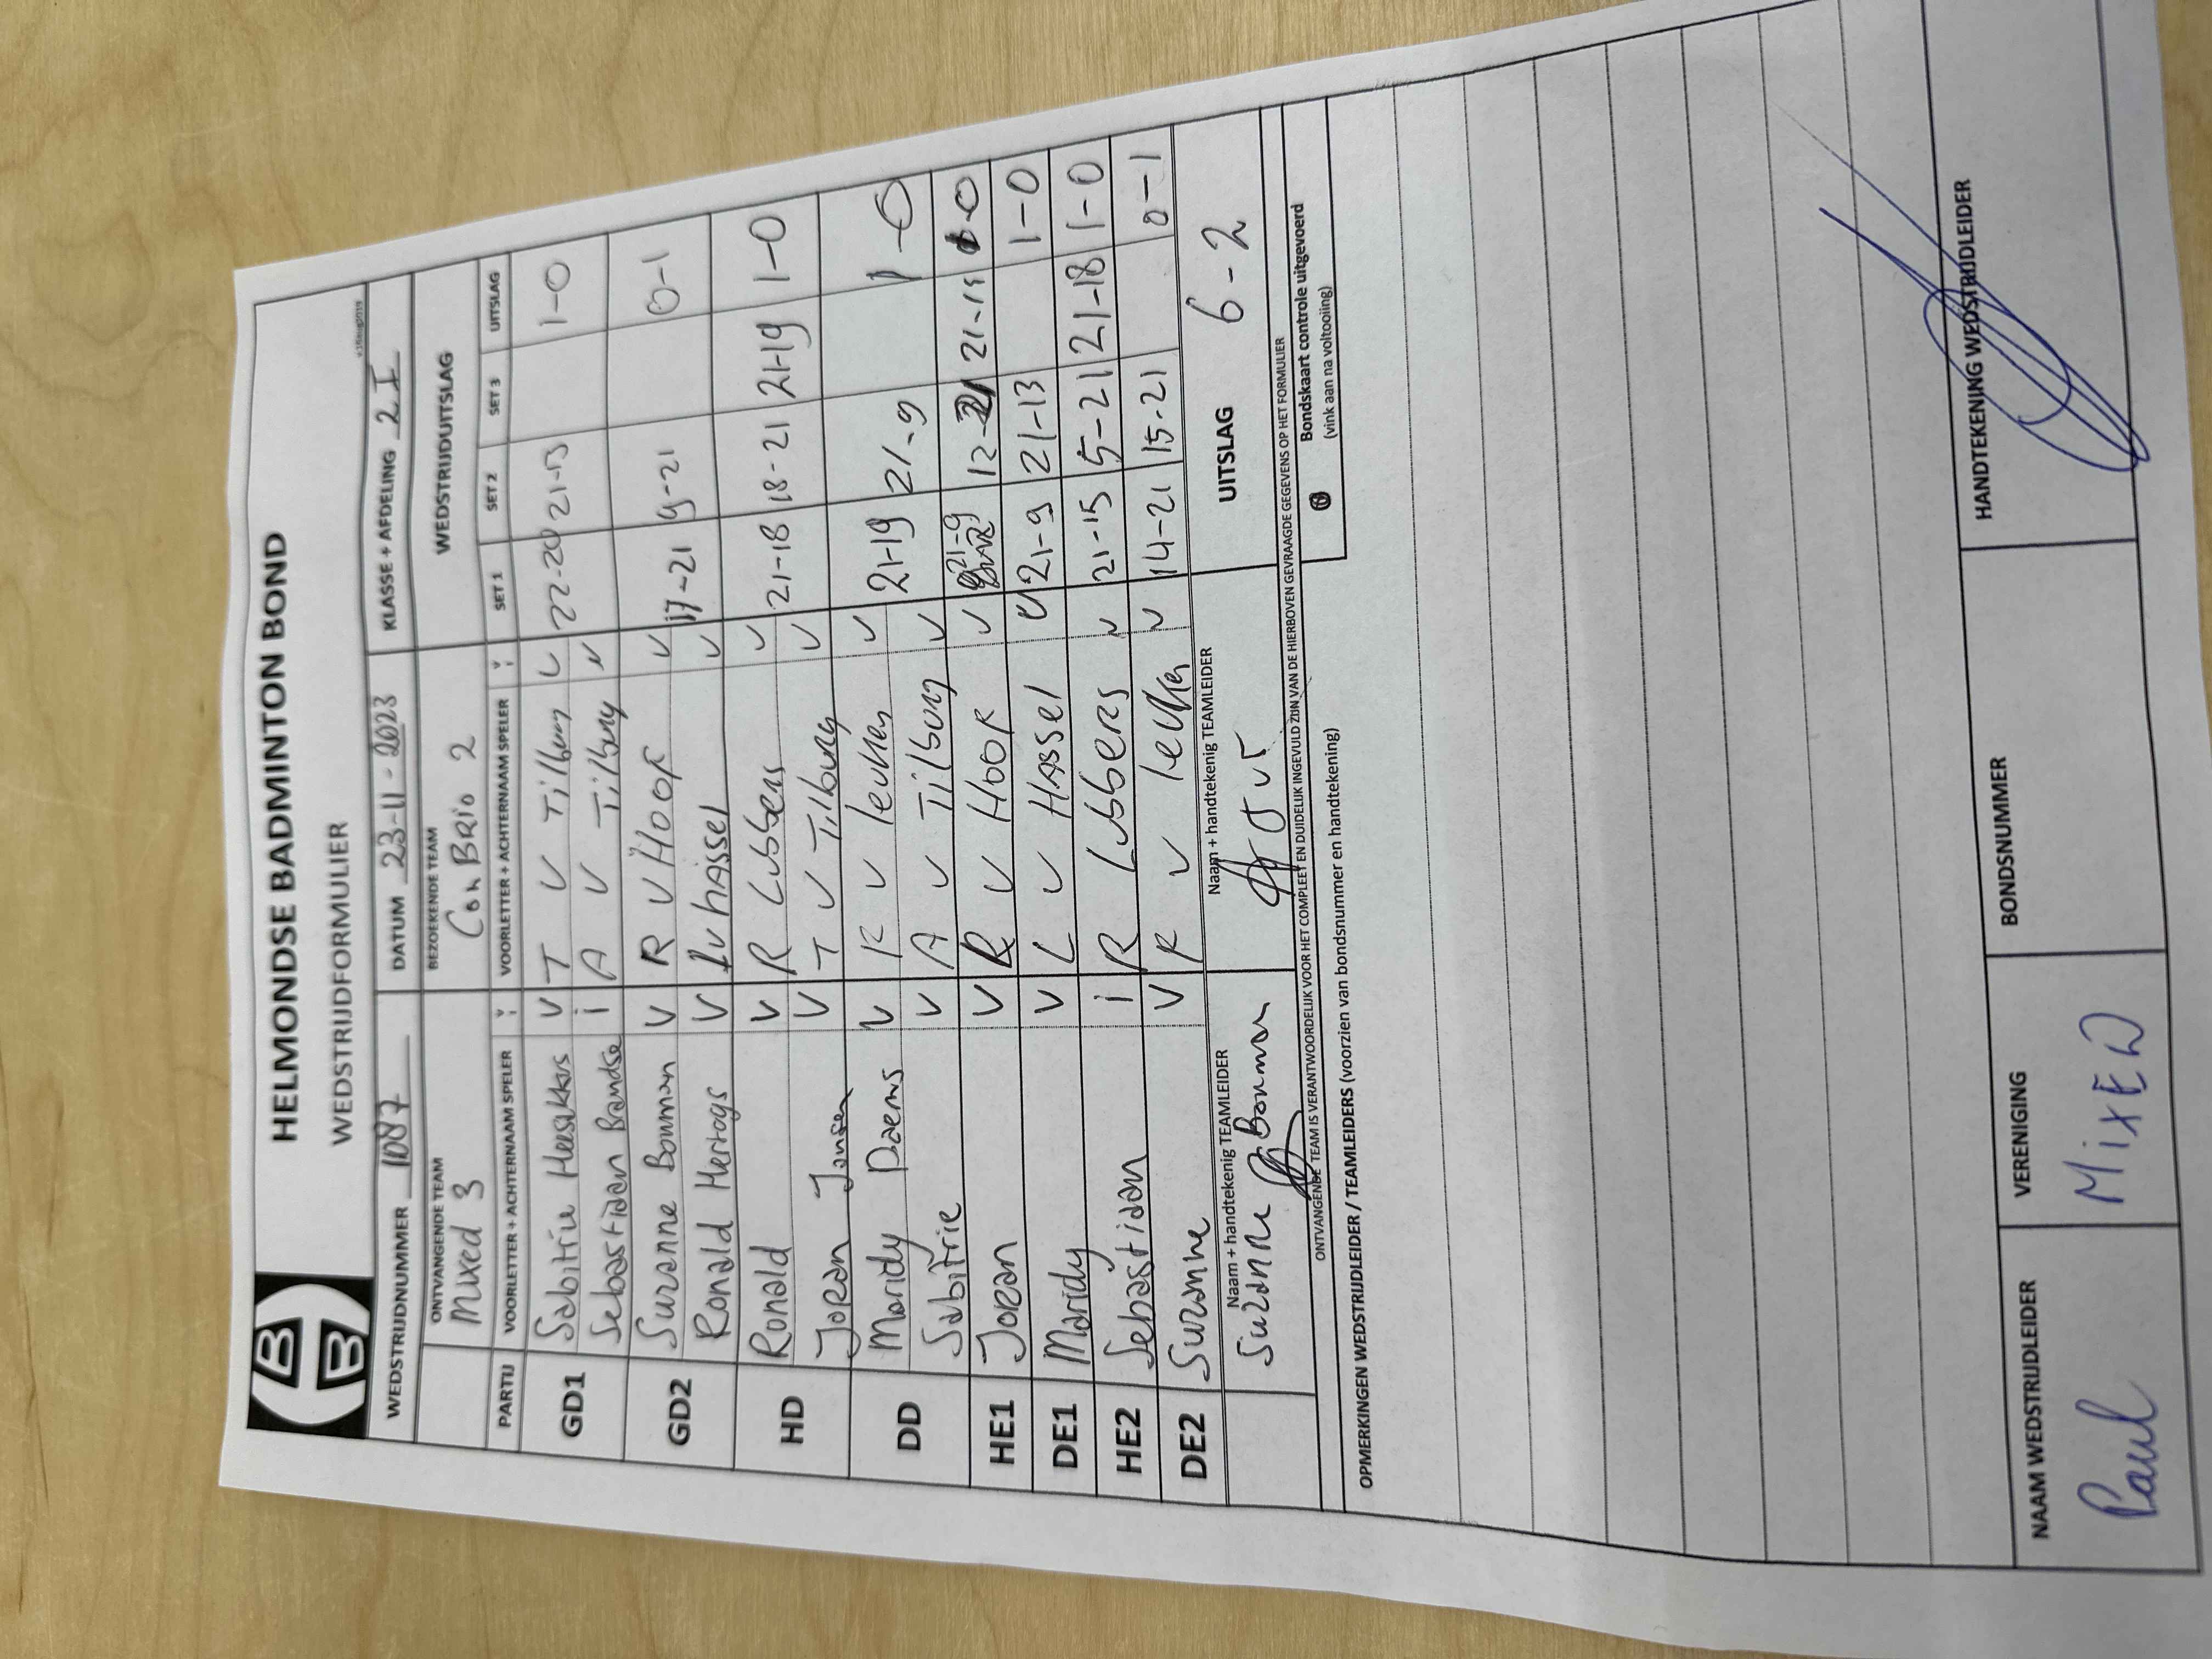 HELMONDSE BADMINTON BOND
WEDSTRIJDFORMULIER
WEDSTRIJDNUMMER 1087 DATUM 23-11-2023 KLASSE + AFDELING 2 I
ONTVANGENDE TEAM BEZOEKENDE TEAM WEDSTRIJDUITSLAG
Mixed 3 Con BRio 2
PARTIJ VOORLETTER + ACHTERNAAM SPELER VOORLETTER + ACHTERNAAM SPELER SET 1 SET 2 SET 3 UITSLAG
GD1 Sabitrie Heesakkers V T V Tilburg V 22-20 21-13 1-0
Sebastiaan Brandse i A V Tilburg V
GD2 Suzanne Bouman V R V Hoof V 17-21 9-21 0-1
Ronald Hertogs V L v hassel V
HD Ronald V R Lubbers V 21-18 18-21 21-19 1-0
Joran Jansen V T V Tilburg V
DD Maridy Daems V K V leuken V 21-19 21-9 1-0
Sabitrie V A V Tilburg V
HE1 Joran V R V Hoof V 21-9 12-21 21-15 1-0
DE1 Maridy V L V Hassel V 21-9 21-13 1-0
HE2 Sebastiaan i R Lubbers V 21-15 5-21 21-18 1-0
DE2 Suzanne V K V leuken V 14-21 15-21 0-1
Naam + handtekenig TEAMLEIDER Naam + handtekenig TEAMLEIDER UITSLAG 6-2
Suzanne Bouman
ONTVANGENDE TEAM IS VERANTWOORDELIJK VOOR HET COMPLEET EN DUIDELIJK INGEVULD ZIJN VAN DE HIERBOVEN GEVRAAGDE GEGEVENS OP HET FORMULIER
Bondskaart controle uitgevoerd
(vink aan na voltooiing)
OPMERKINGEN WEDSTRIJDLEIDER / TEAMLEIDERS (voorzien van bondsnummer en handtekening)
NAAM WEDSTRIJDLEIDER VERENIGING BONDSNUMMER HANDTEKENING WEDSTRIJDLEIDER
Paul MixED